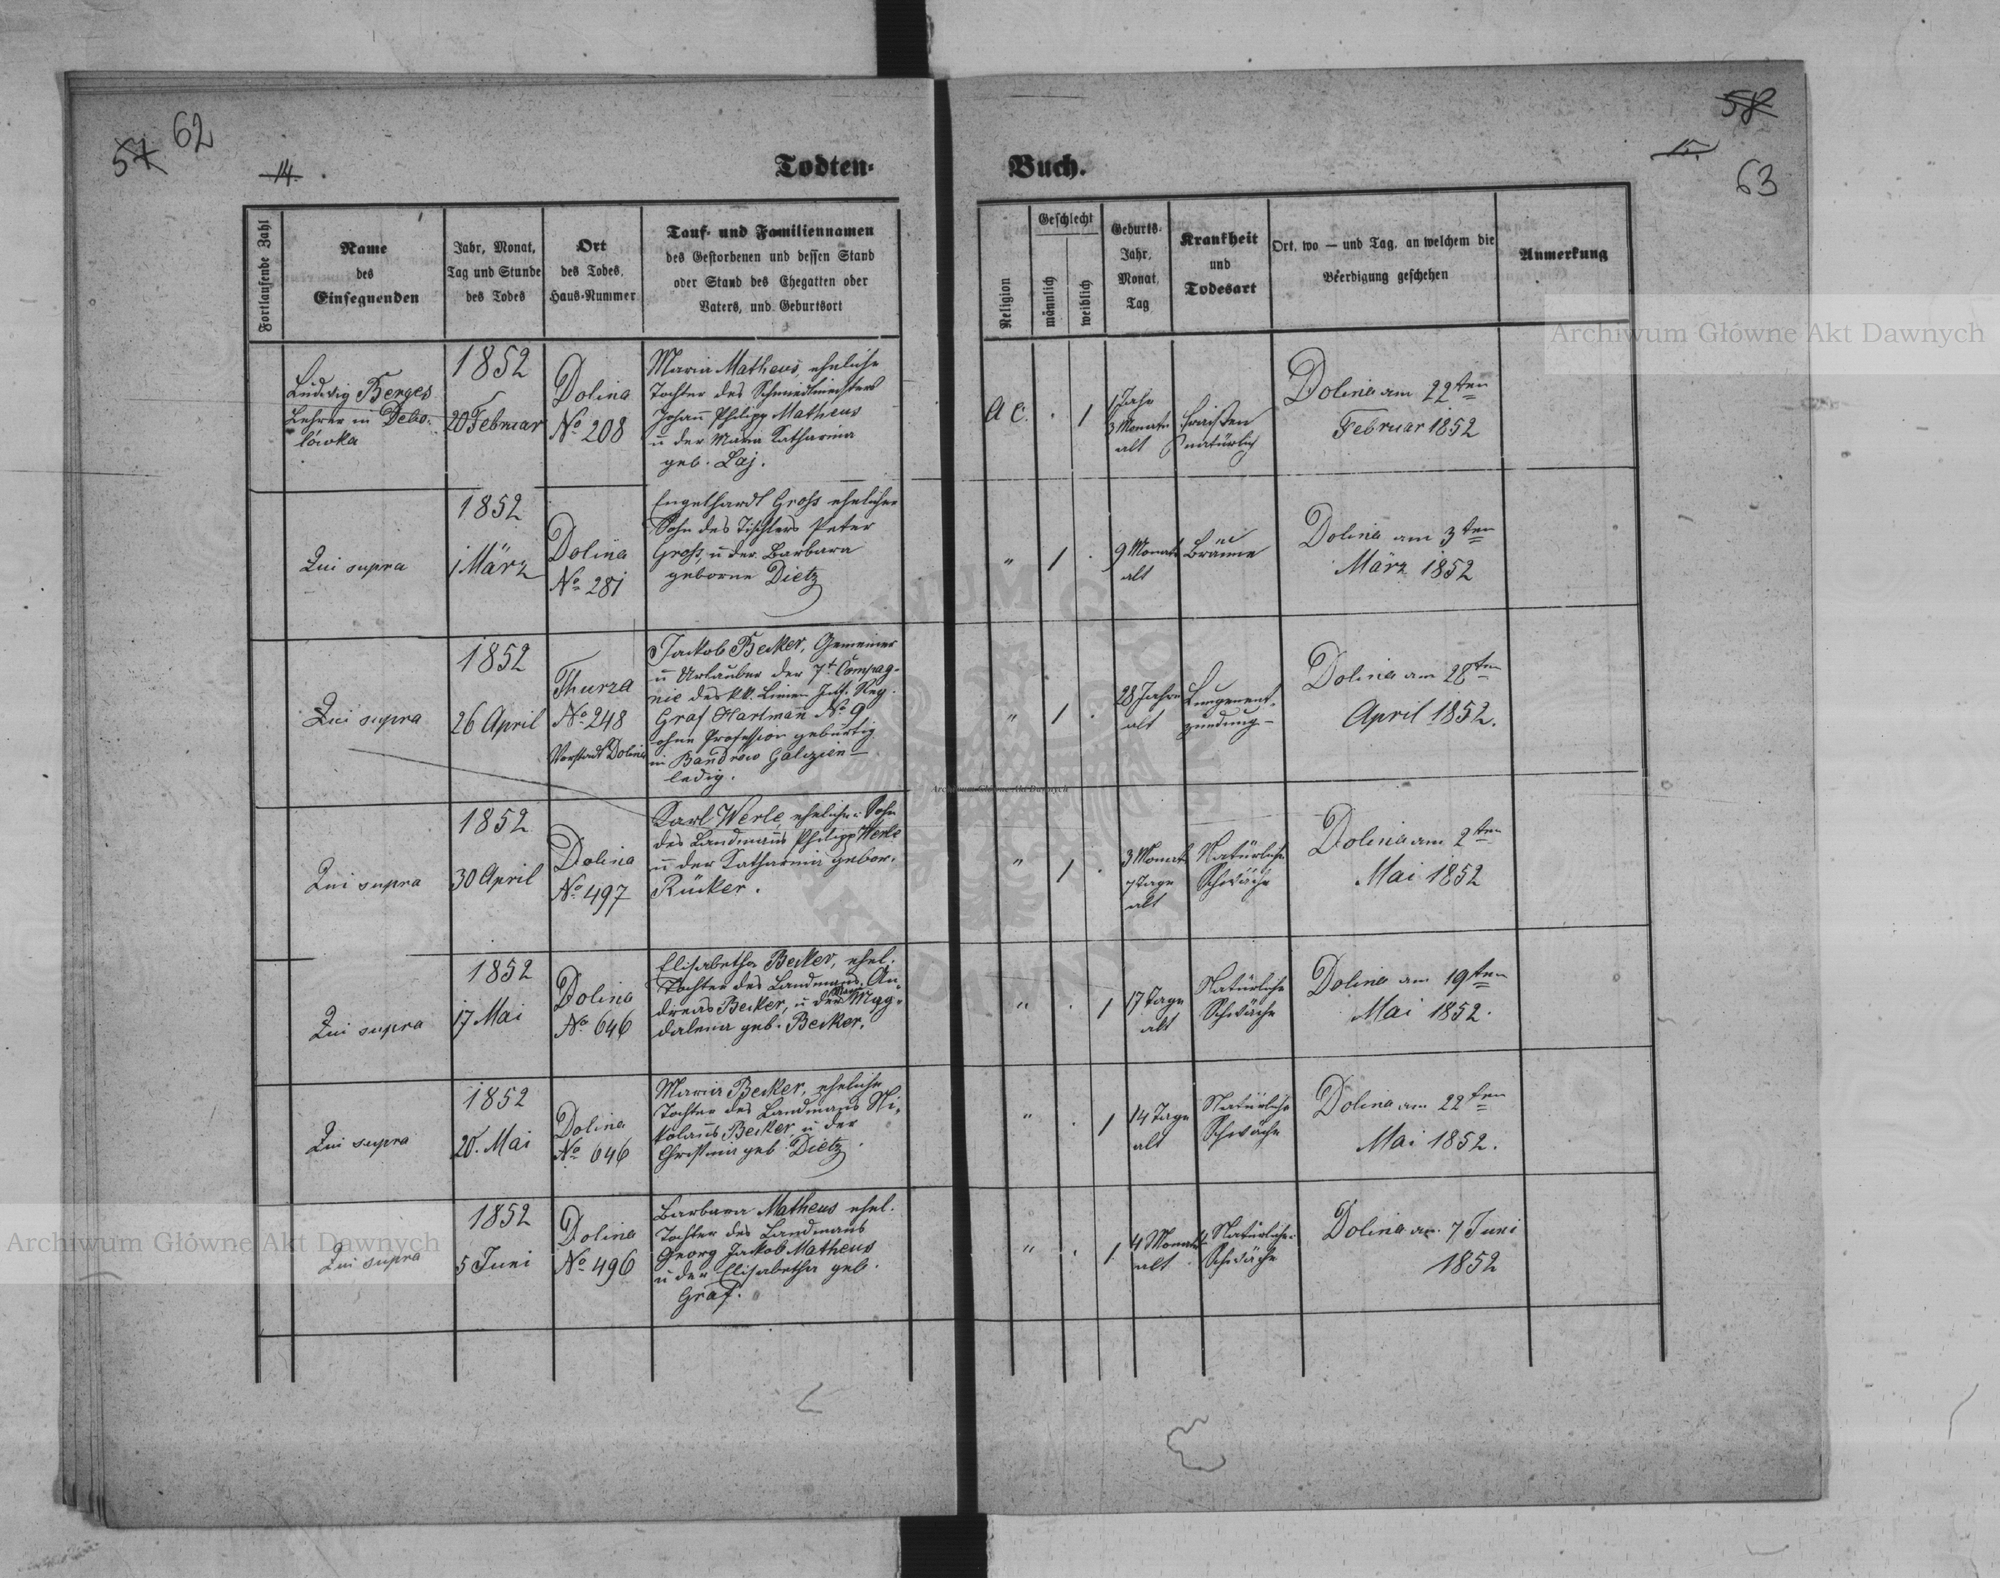 57 62
14.
Todten-
Fortlaufende Zahl
Name
des
Einsegnenden
Jahr, Monat,
Tag und Stunde
des Todes
Ort
des Todes,
Haus-Nummer
Tauf- und Familiennamen
des Gestorbenen und dessen Stand
oder Stand des Ehegatten oder
Vaters, und Geburtsort
Ludwig Berges
Lehrer in Debo-
lowka
1852
20 Februar
Dolina
No 208
Maria Matheus, eheliche
Tochter des Schmiedmeisters
Johann Philipp Matheus
u der Maria Katharina
geb. Laj.
Qui supra
1852
1 März
Dolina
No 281
Engelhardt Groß ehelicher
Sohn des Tischlers Peter
Groß, u der Barbara
geborne Dietz
Qui supra
1852
26 April
Thurza
No 248
Vorstadt Dolina
Jackob Becker, Gemeiner
u Urlauber der 7t Compag-
nie des kk. Linien Inf. Reg.
Graf Hartmañ No 9
ohne Profession gebürtig
in Bandrow Galizien
ledig.
Qui supra
1852
30 April
Dolina
No 497
Karl Werle, ehelicher Sohn
des Landmañs Philipp Werle
u der Katharina gebor.
Rücker.
Qui supra
1852
17 Mai
Dolina
No 646
Elisabetha Becker, ehel.
Tochter des Landmans An-
dreas Becker, u der Mag-
dalena geb. Becker.
Qui supra
1852
20. Mai
Dolina
No 646
Maria Becker, eheliche
Tochter des Landmans Ni-
kolaus Becker u der
Christina geb. Dietz.
Qui supra
1852
5 Juni
Dolina
No 496
Barbara Matheus ehel.
Tochter des Landmans
Georg Jackob Matheus
u der Elisabetha geb.
Graf.
58
15.
63
Buch.
Religion
Geschlecht
männlich
weiblich
Geburts-
Jahr,
Monat,
Tag
Krankheit
und
Todesart
Ort, wo — und Tag, an welchem die
Beerdigung geschehen
Anmerkung
A C. . 1
1 Jahr
3 Monate
alt
Fraißen
natürlich
Dolina am 22ten
Februar 1852
" 1 .
9 Monate
alt
Bräune
Dolina am 3ten
März 1852
" 1 .
28 Jahre
alt
Lungenent-
zündung
Dolina am 28ten
April 1852.
" 1 .
3 Monate
7 Tage
alt
Natürliche
Schwäche
Dolina am 2ten
Mai 1852
" . 1
17 Tage
alt
Natürliche
Schwäche
Dolina am 19ten
Mai 1852.
" . 1
14 Tage
alt
Natürliche
Schwäche
Dolina am 22ten
Mai 1852.
" . 1
4 Monate
alt
Natürliche
Schwäche
Dolina am 7 Juni
1852
Archiwum Główne Akt Dawnych
Archiwum Główne Akt Dawnych
Archiwum Główne Akt Dawnych